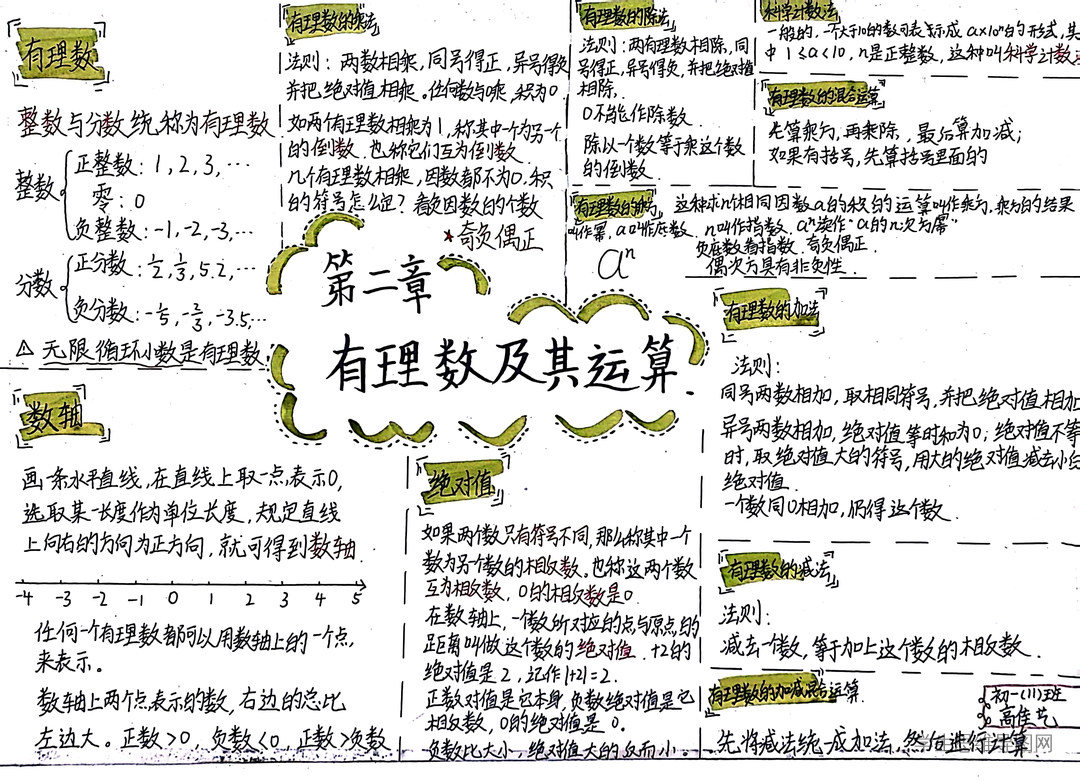 有理数
整数与分数统称为有理数
整数
正整数：1, 2, 3, …
零：0
负整数：-1, -2, -3, …
分数
正分数：1/2, 1/3, 5.2, …
负分数：-1/5, -2/3, -3.5, …
△ 无限循环小数是有理数
数轴
画一条水平直线，在直线上取一点表示0，
选取某一长度作为单位长度，规定直线
上向右的方向为正方向，就可得到数轴
-4 -3 -2 -1 0 1 2 3 4 5
任何一个有理数都可以用数轴上的一个点，
来表示。
数轴上两个点表示的数，右边的总比
左边大。正数>0，负数<0，正数>负数
有理数的乘法
法则：两数相乘，同号得正，异号得负
并把绝对值相乘。任何数与0乘，积为0
如两个有理数相乘为1，称其中一个为另一个
的倒数，也称它们互为倒数
几个有理数相乘，因数都不为0，积
的符号怎么定？看负因数的个数
★奇负偶正
第二章
有理数及其运算
绝对值
如果两个数只有符号不同，那么称其中一个
数为另一个数的相反数。也称这两个数
互为相反数，0的相反数是0
在数轴上，一个数所对应的点与原点的
距离叫做这个数的绝对值．+2的
绝对值是2，记作|+2|=2．
正数对值是它本身，负数绝对值是它
相反数，0的绝对值是0．
负数比大小，绝对值大的反而小。
有理数的除法
法则：两有理数相除，同
号得正，异号得负，并把绝对值
相除．
0不能作除数．
除以一个数等于乘这个数
的倒数．
科学计数法
一般的，一个大于10的数可表示成 a×10ⁿ的形式，其
中 1≤a<10，n是正整数，这种叫科学计数法
有理数的混合运算
先算乘方，再乘除，最后算加减；
如果有括号，先算括号里面的
有理数的乘方
这种求n个相同因数a的积的运算叫作乘方，乘方的结果
叫作幂，a叫作底数，n叫作指数，aⁿ读作“a的n次方幂”
aⁿ
负底数看指数，奇负偶正．
偶次方具有非负性．
有理数的加法
法则：
同号两数相加，取相同符号，并把绝对值相加
异号两数相加，绝对值等时和为0；绝对值不等
时，取绝对值大的符号，用大的绝对值减去小的
绝对值．
一个数同0相加，仍得这个数．
有理数的减法
法则：
减去一个数，等于加上这个数的相反数．
有理数的加减混合运算
先将减法统一成加法，然后进行计算
初一(11)班
高佳艺